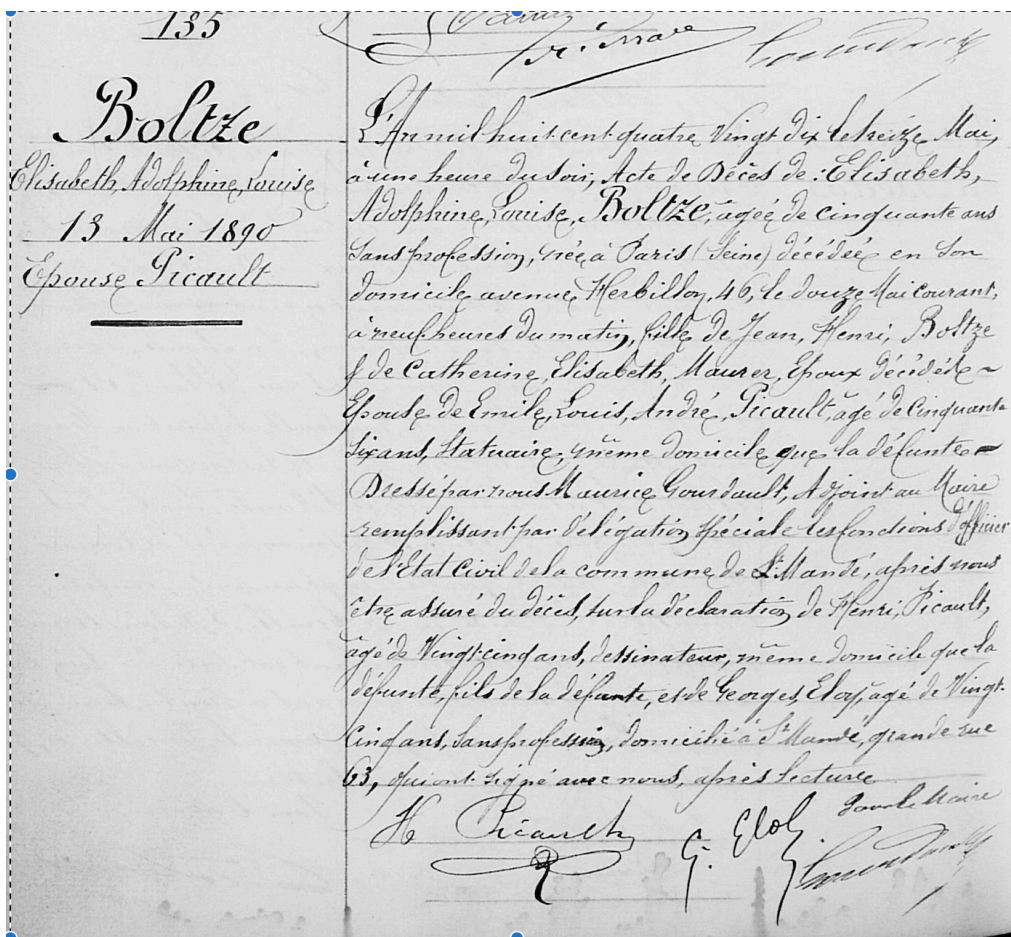 135
Boltze
Elisabeth, Adolphine, Louise
13 Mai 1890
Epouse Picault
L'An mil huit cent quatre Vingt dix le treize Mai,
à une heure du soir, Acte de Décès de : Elisabeth,
Adolphine, Louise, Boltze, âgée de cinquante ans
sans profession, née à Paris (Seine) décédée en son
domicile avenue Herbillon, 46, le douze Mai courant,
à neuf heures du matin, fille de Jean, Henri, Boltze
& de Catherine, Elisabeth, Maurer, Epoux décédés ~
Epouse de Emile, Louis, André, Picault, âgé de Cinquante
six ans, Statuaire, même domicile que la défunte =
Dressé par nous Maurice Gourdault, Adjoint au Maire
remplissant par délégation spéciale les fonctions d'officier
de l'Etat Civil de la commune de St Mandé, après nous
être assuré du décès, sur la déclaration de Henri, Picault,
âgé de Vingt cinq ans, dessinateur, même domicile que la
défunte, fils de la défunte, et de Georges, Eloy, âgé de Vingt
Cinq ans, sans profession, domicilié à St Mandé, grande rue
63, qui ont signé avec nous, après lecture
Pour le Maire
H Picault G. Eloy